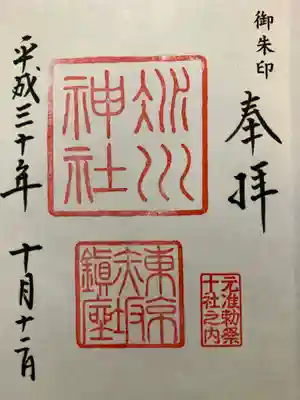 御朱印
奉拝
元准勅祭
十社之内
氷川
神社
東京
赤坂
鎮座
平成三十年 十月十二日